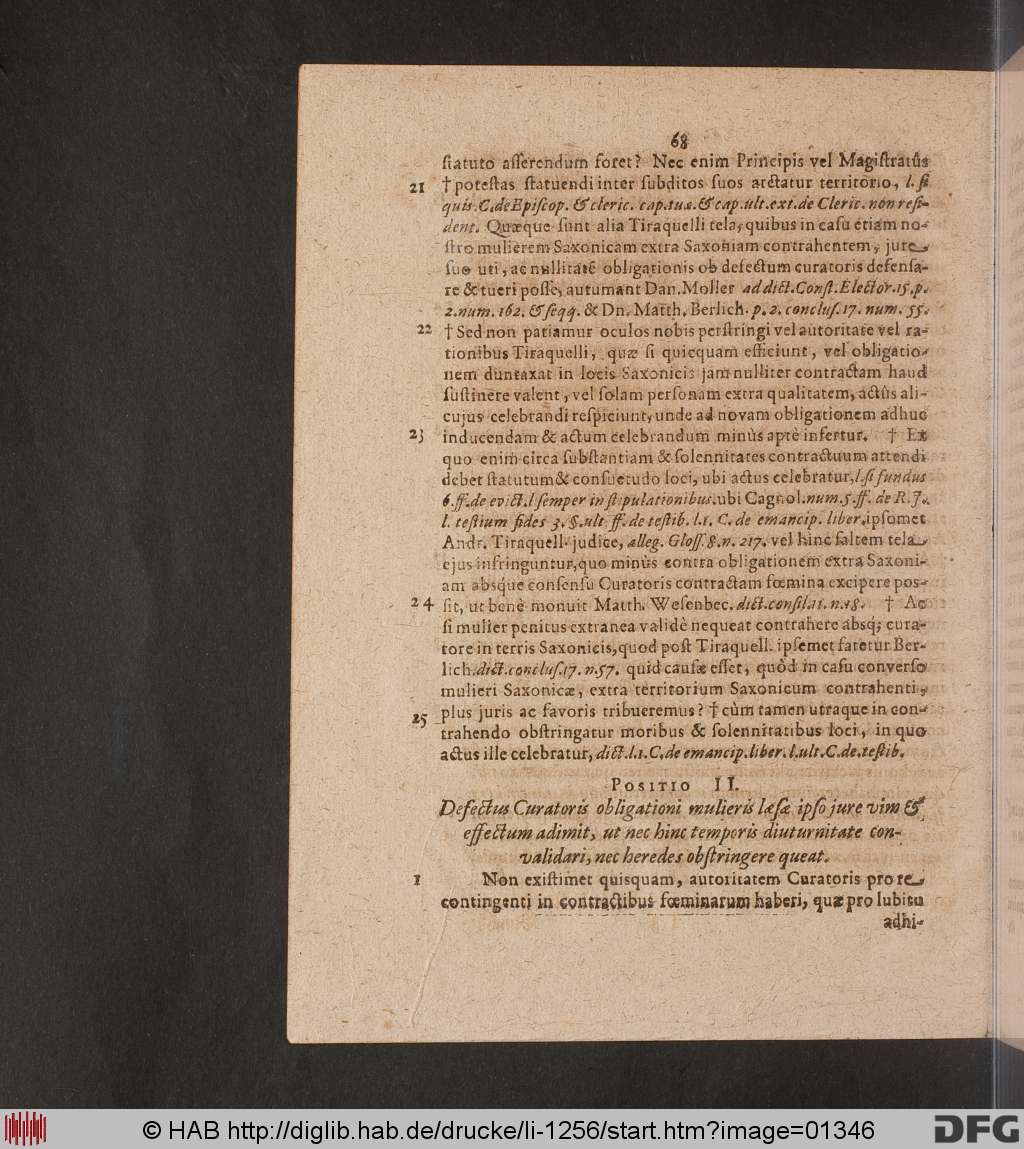 68
ſtatuto aſſerendum foret? Nec enim Principis vel Magiſtratûs
21 † poteſtas ſtatuendi inter ſubditos ſuos arctatur territorio, l. ſi
quis. C. de Epiſcop. & cleric. cap. tuæ. & cap. ult. ext. de Cleric. non reſi-
dent. Quæque ſunt alia Tiraquelli tela, quibus in caſu etiam no-
ſtro mulierem Saxonicam extra Saxoniam contrahentem, jure
ſuo uti, ac nullitatē obligationis ob defectum curatoris defenſa-
re & tueri poſſe, autumant Dan. Moller ad dict. Conſt. Elector. 15. p.
2. num. 162. & ſeqq. & Dn. Matth. Berlich. p. 2. concluſ. 17. num. 55.
22 † Sed non patiamur oculos nobis perſtringi vel autoritate vel ra-
tionibus Tiraquelli, quæ ſi quicquam efficiunt, vel obligatio-
nem duntaxat in locis Saxonicis jam nulliter contractam haud
ſuſtinere valent, vel ſolam perſonam extra qualitatem, actûs ali-
cujus celebrandi reſpiciunt, unde ad novam obligationem adhuc
23 inducendam & actum celebrandum minùs aptè infertur. † Ex
quo enim circa ſubſtantiam & ſolennitates contractuum attendi
debet ſtatutum & conſuetudo loci, ubi actus celebratur, l. ſi fundus
6. ff. de evict. l ſemper in ſtipulationibus. ubi Cagnol. num. 5. ff. de R. J.
l. teſtium fides 3. §. ult ff. de teſtib. l. 1. C. de emancip. liber. ipſomet
Andr. Tiraquell. judice, alleg. Gloſſ. 8. n. 217. vel hinc ſaltem tela
ejus infringuntur, quo minùs contra obligationem extra Saxoni-
am absque conſenſu Curatoris contractam fœmina excipere poſ-
24 ſit, ut benè monuit Matth. Weſenbec. dict. conſil. 11. n. 18. † Ac
ſi mulier penitus extranea validè nequeat contrahere absq; cura-
tore in terris Saxonicis, quod poſt Tiraquell. ipſemet fatetur Ber-
lich. dict. concluſ. 17. n. 57. quid cauſæ eſſet, quòd in caſu converſo
mulieri Saxonicæ, extra territorium Saxonicum contrahenti,
25 plus juris ac favoris tribueremus? † cùm tamen utraque in con-
trahendo obſtringatur moribus & ſolennitatibus loci, in quo
actus ille celebratur, dict. l. 1. C. de emancip. liber. l. ult. C. de teſtib.
POSITIO II.
Defectus Curatoris obligationi mulieris læſæ ipſo jure vim &
effectum adimit, ut nec hinc temporis diuturnitate con-
validari, nec heredes obſtringere queat.
1 Non exiſtimet quisquam, autoritatem Curatoris pro re
contingenti in contractibus fœminarum haberi, quæ pro lubitu
adhi-
© HAB http://diglib.hab.de/drucke/li-1256/start.htm?image=01346
DFG